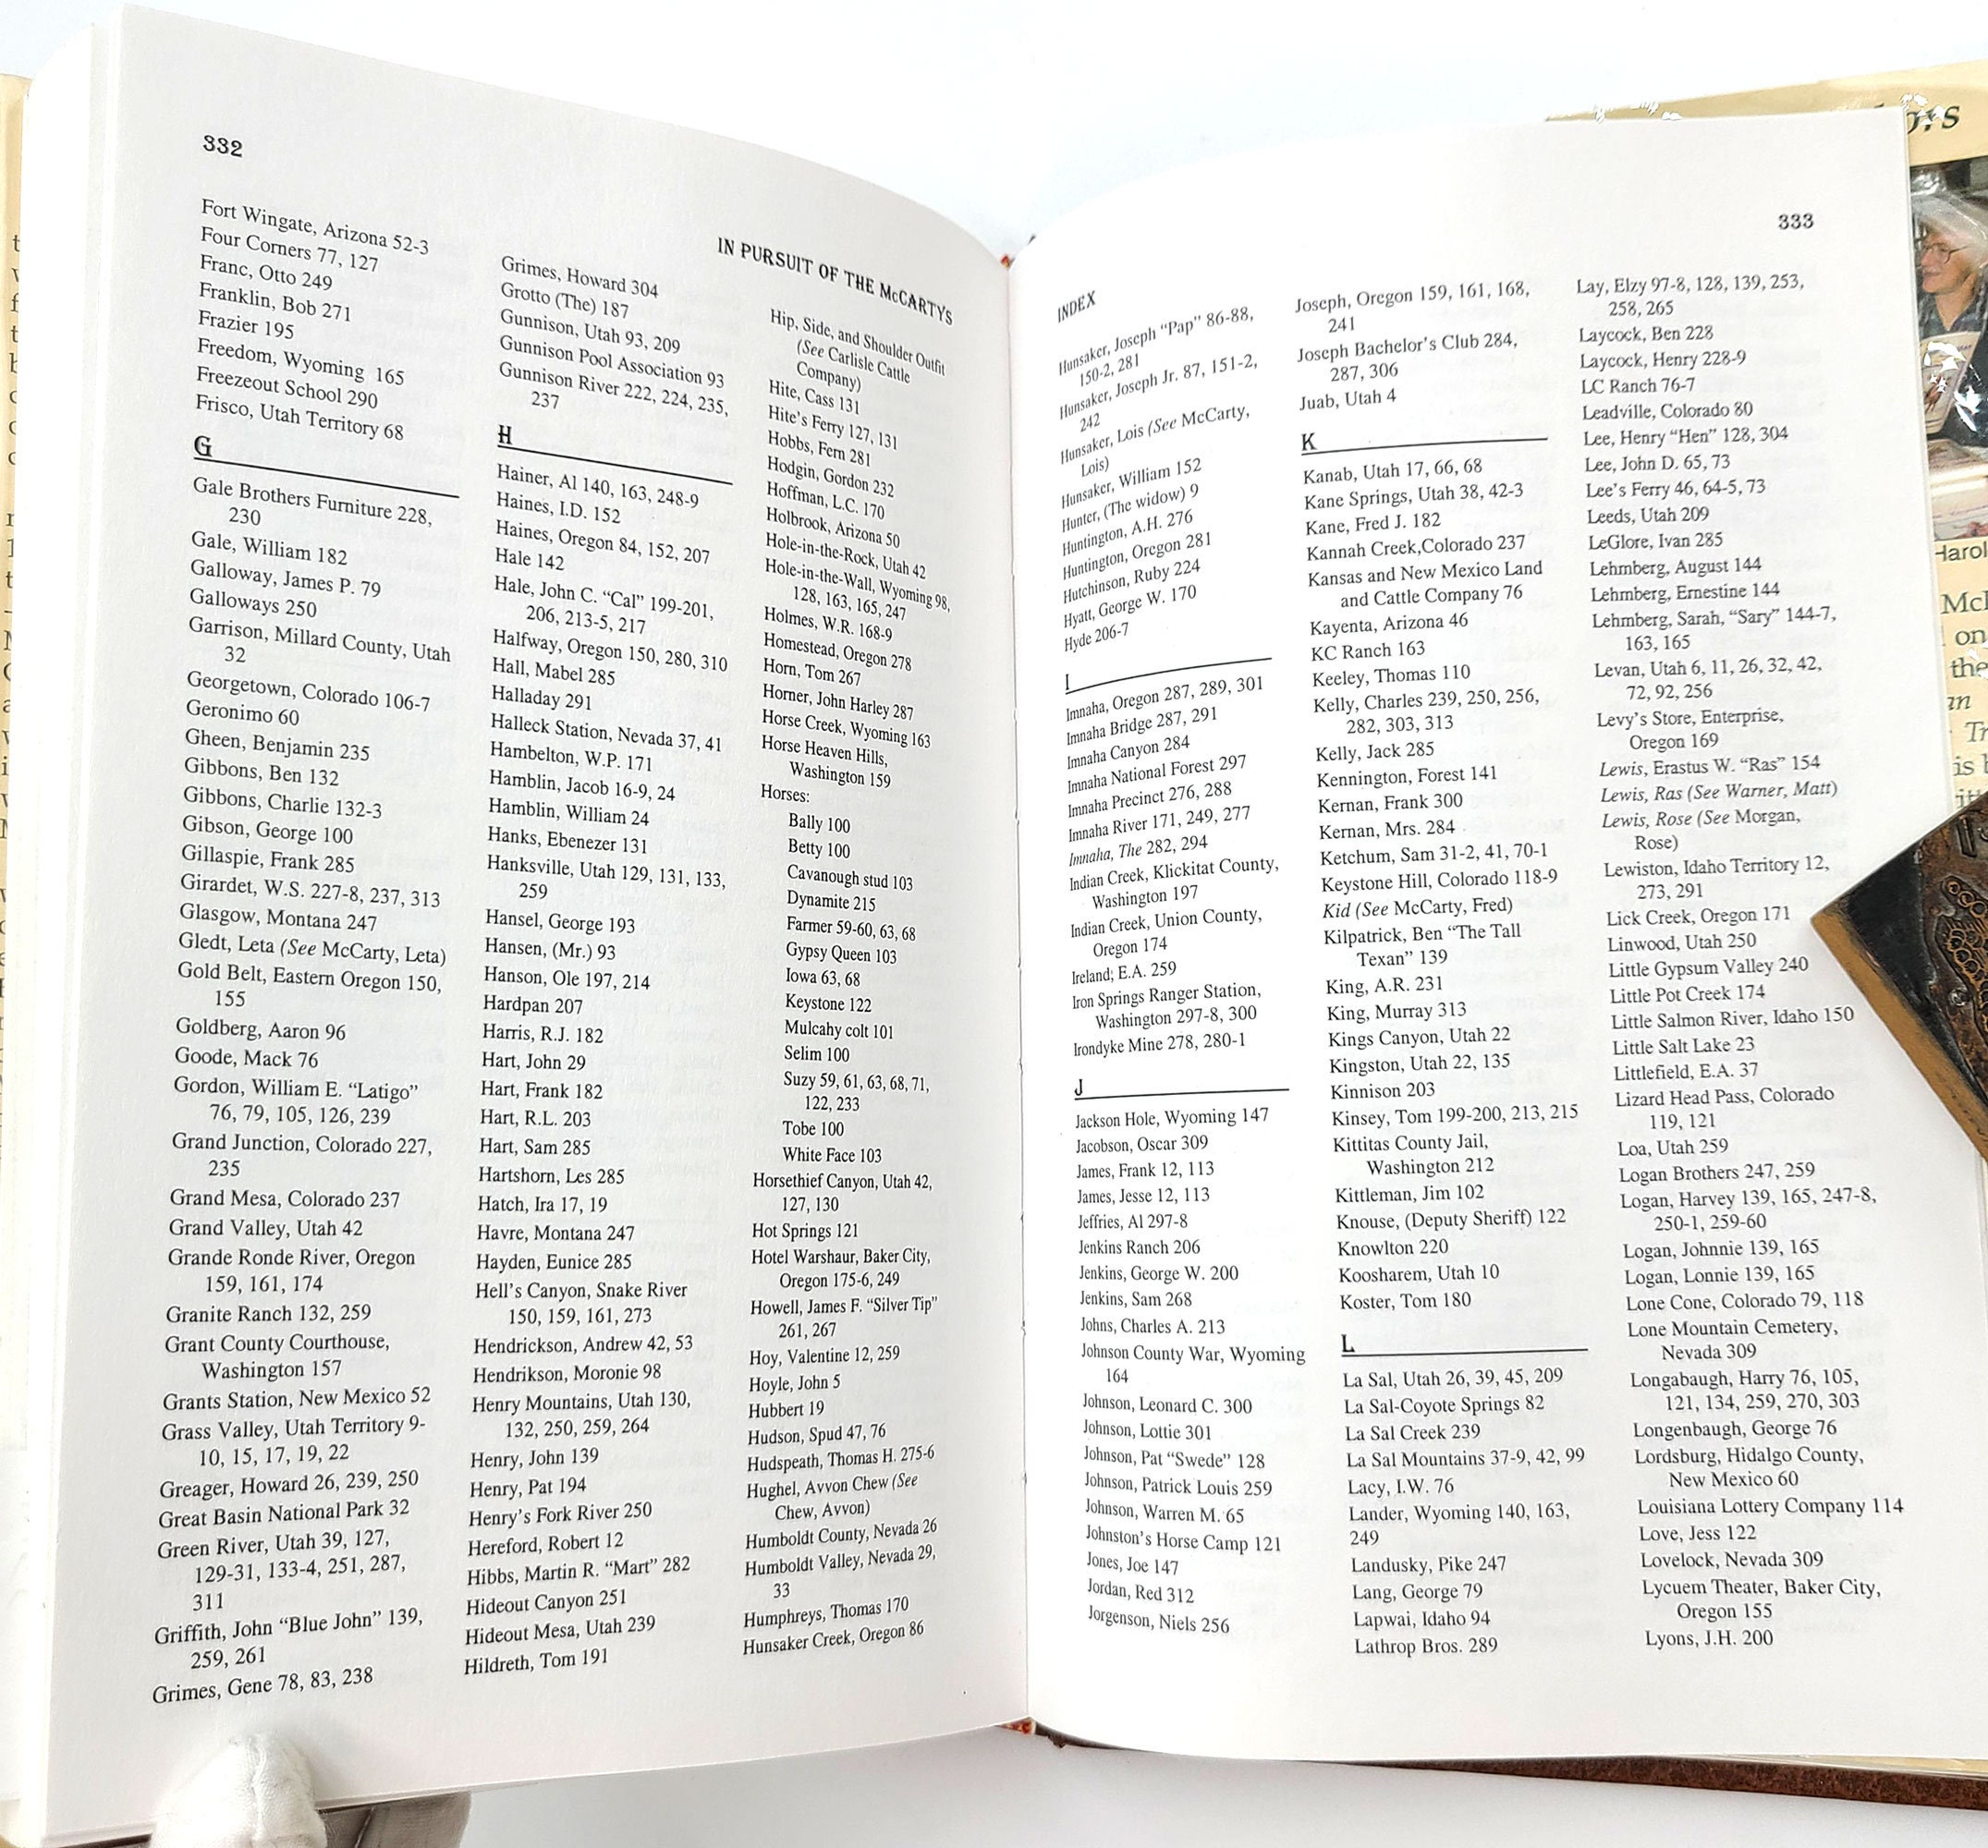 332
IN PURSUIT OF THE McCARTYS
Fort Wingate, Arizona 52-3
Four Corners 77, 127
Franc, Otto 249
Franklin, Bob 271
Frazier 195
Freedom, Wyoming 165
Freezeout School 290
Frisco, Utah Territory 68
G
Gale Brothers Furniture 228,
230
Gale, William 182
Galloway, James P. 79
Galloways 250
Garrison, Millard County, Utah
32
Georgetown, Colorado 106-7
Geronimo 60
Gheen, Benjamin 235
Gibbons, Ben 132
Gibbons, Charlie 132-3
Gibson, George 100
Gillaspie, Frank 285
Girardet, W.S. 227-8, 237, 313
Glasgow, Montana 247
Gledt, Leta (See McCarty, Leta)
Gold Belt, Eastern Oregon 150,
155
Goldberg, Aaron 96
Goode, Mack 76
Gordon, William E. “Latigo”
76, 79, 105, 126, 239
Grand Junction, Colorado 227,
235
Grand Mesa, Colorado 237
Grand Valley, Utah 42
Grande Ronde River, Oregon
159, 161, 174
Granite Ranch 132, 259
Grant County Courthouse,
Washington 157
Grants Station, New Mexico 52
Grass Valley, Utah Territory 9-
10, 15, 17, 19, 22
Greager, Howard 26, 239, 250
Great Basin National Park 32
Green River, Utah 39, 127,
129-31, 133-4, 251, 287,
311
Griffith, John “Blue John” 139,
259, 261
Grimes, Gene 78, 83, 238
Grimes, Howard 304
Grotto (The) 187
Gunnison, Utah 93, 209
Gunnison Pool Association 93
Gunnison River 222, 224, 235,
237
H
Hainer, Al 140, 163, 248-9
Haines, I.D. 152
Haines, Oregon 84, 152, 207
Hale 142
Hale, John C. “Cal” 199-201,
206, 213-5, 217
Halfway, Oregon 150, 280, 310
Hall, Mabel 285
Halladay 291
Halleck Station, Nevada 37, 41
Hambelton, W.P. 171
Hamblin, Jacob 16-9, 24
Hamblin, William 24
Hanks, Ebenezer 131
Hanksville, Utah 129, 131, 133,
259
Hansel, George 193
Hansen, (Mr.) 93
Hanson, Ole 197, 214
Hardpan 207
Harris, R.J. 182
Hart, John 29
Hart, Frank 182
Hart, R.L. 203
Hart, Sam 285
Hartshorn, Les 285
Hatch, Ira 17, 19
Havre, Montana 247
Hayden, Eunice 285
Hell’s Canyon, Snake River
150, 159, 161, 273
Hendrickson, Andrew 42, 53
Hendrikson, Moronie 98
Henry Mountains, Utah 130,
132, 250, 259, 264
Henry, John 139
Henry, Pat 194
Henry’s Fork River 250
Hereford, Robert 12
Hibbs, Martin R. “Mart” 282
Hideout Canyon 251
Hideout Mesa, Utah 239
Hildreth, Tom 191
Hip, Side, and Shoulder Outfit
(See Carlisle Cattle
Company)
Hite, Cass 131
Hite’s Ferry 127, 131
Hobbs, Fern 281
Hodgin, Gordon 232
Hoffman, L.C. 170
Holbrook, Arizona 50
Hole-in-the-Rock, Utah 42
Hole-in-the-Wall, Wyoming 98,
128, 163, 165, 247
Holmes, W.R. 168-9
Homestead, Oregon 278
Horn, Tom 267
Horner, John Harley 287
Horse Creek, Wyoming 163
Horse Heaven Hills,
Washington 159
Horses:
Bally 100
Betty 100
Cavanough stud 103
Dynamite 215
Farmer 59-60, 63, 68
Gypsy Queen 103
Iowa 63, 68
Keystone 122
Mulcahy colt 101
Selim 100
Suzy 59, 61, 63, 68, 71,
122, 233
Tobe 100
White Face 103
Horsethief Canyon, Utah 42,
127, 130
Hot Springs 121
Hotel Warshaur, Baker City,
Oregon 175-6, 249
Howell, James F. “Silver Tip”
261, 267
Hoy, Valentine 12, 259
Hoyle, John 5
Hubbert 19
Hudson, Spud 47, 76
Hudspeath, Thomas H. 275-6
Hughel, Avvon Chew (See
Chew, Avvon)
Humboldt County, Nevada 26
Humboldt Valley, Nevada 29,
33
Humphreys, Thomas 170
Hunsaker Creek, Oregon 86
INDEX
333
Hunsaker, Joseph “Pap” 86-88,
150-2, 281
Hunsaker, Joseph Jr. 87, 151-2,
242
Hunsaker, Lois (See McCarty,
Lois)
Hunsaker, William 152
Hunter, (The widow) 9
Huntington, A.H. 276
Huntington, Oregon 281
Hutchinson, Ruby 224
Hyatt, George W. 170
Hyde 206-7
I
Imnaha, Oregon 287, 289, 301
Imnaha Bridge 287, 291
Imnaha Canyon 284
Imnaha National Forest 297
Imnaha Precinct 276, 288
Imnaha River 171, 249, 277
Imnaha, The 282, 294
Indian Creek, Klickitat County,
Washington 197
Indian Creek, Union County,
Oregon 174
Ireland; E.A. 259
Iron Springs Ranger Station,
Washington 297-8, 300
Irondyke Mine 278, 280-1
J
Jackson Hole, Wyoming 147
Jacobson, Oscar 309
James, Frank 12, 113
James, Jesse 12, 113
Jeffries, Al 297-8
Jenkins Ranch 206
Jenkins, George W. 200
Jenkins, Sam 268
Johns, Charles A. 213
Johnson County War, Wyoming
164
Johnson, Leonard C. 300
Johnson, Lottie 301
Johnson, Pat “Swede” 128
Johnson, Patrick Louis 259
Johnson, Warren M. 65
Johnston’s Horse Camp 121
Jones, Joe 147
Jordan, Red 312
Jorgenson, Niels 256
Joseph, Oregon 159, 161, 168,
241
Joseph Bachelor’s Club 284,
287, 306
Juab, Utah 4
K
Kanab, Utah 17, 66, 68
Kane Springs, Utah 38, 42-3
Kane, Fred J. 182
Kannah Creek,Colorado 237
Kansas and New Mexico Land
and Cattle Company 76
Kayenta, Arizona 46
KC Ranch 163
Keeley, Thomas 110
Kelly, Charles 239, 250, 256,
282, 303, 313
Kelly, Jack 285
Kennington, Forest 141
Kernan, Frank 300
Kernan, Mrs. 284
Ketchum, Sam 31-2, 41, 70-1
Keystone Hill, Colorado 118-9
Kid (See McCarty, Fred)
Kilpatrick, Ben “The Tall
Texan” 139
King, A.R. 231
King, Murray 313
Kings Canyon, Utah 22
Kingston, Utah 22, 135
Kinnison 203
Kinsey, Tom 199-200, 213, 215
Kittitas County Jail,
Washington 212
Kittleman, Jim 102
Knouse, (Deputy Sheriff) 122
Knowlton 220
Koosharem, Utah 10
Koster, Tom 180
L
La Sal, Utah 26, 39, 45, 209
La Sal-Coyote Springs 82
La Sal Creek 239
La Sal Mountains 37-9, 42, 99
Lacy, I.W. 76
Lander, Wyoming 140, 163,
249
Landusky, Pike 247
Lang, George 79
Lapwai, Idaho 94
Lathrop Bros. 289
Lay, Elzy 97-8, 128, 139, 253,
258, 265
Laycock, Ben 228
Laycock, Henry 228-9
LC Ranch 76-7
Leadville, Colorado 80
Lee, Henry “Hen” 128, 304
Lee, John D. 65, 73
Lee’s Ferry 46, 64-5, 73
Leeds, Utah 209
LeGlore, Ivan 285
Lehmberg, August 144
Lehmberg, Ernestine 144
Lehmberg, Sarah, “Sary” 144-7,
163, 165
Levan, Utah 6, 11, 26, 32, 42,
72, 92, 256
Levy’s Store, Enterprise,
Oregon 169
Lewis, Erastus W. “Ras” 154
Lewis, Ras (See Warner, Matt)
Lewis, Rose (See Morgan,
Rose)
Lewiston, Idaho Territory 12,
273, 291
Lick Creek, Oregon 171
Linwood, Utah 250
Little Gypsum Valley 240
Little Pot Creek 174
Little Salmon River, Idaho 150
Little Salt Lake 23
Littlefield, E.A. 37
Lizard Head Pass, Colorado
119, 121
Loa, Utah 259
Logan Brothers 247, 259
Logan, Harvey 139, 165, 247-8,
250-1, 259-60
Logan, Johnnie 139, 165
Logan, Lonnie 139, 165
Lone Cone, Colorado 79, 118
Lone Mountain Cemetery,
Nevada 309
Longabaugh, Harry 76, 105,
121, 134, 259, 270, 303
Longenbaugh, George 76
Lordsburg, Hidalgo County,
New Mexico 60
Louisiana Lottery Company 114
Love, Jess 122
Lovelock, Nevada 309
Lycuem Theater, Baker City,
Oregon 155
Lyons, J.H. 200